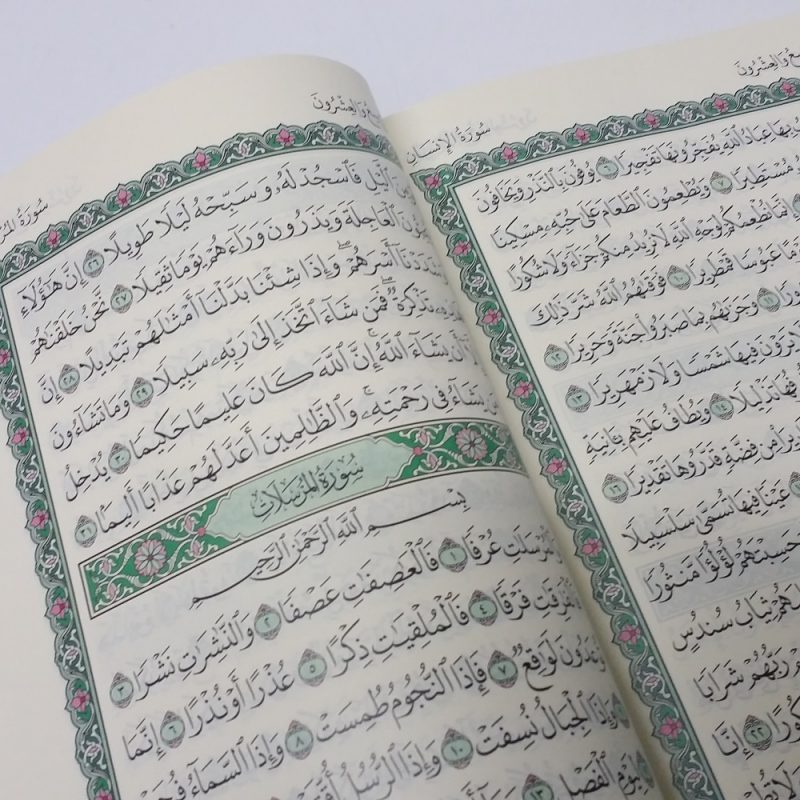 سُورَةُ الإِنسَانِ
وَالعِشْرُونَ
بِهَا عِبَادُ ٱللَّهِ يُفَجِّرُونَهَا تَفْجِيرًا ٦ يُوفُونَ بِٱلنَّذْرِ وَيَخَافُونَ
مُسْتَطِيرًا ٧ وَيُطْعِمُونَ ٱلطَّعَامَ عَلَىٰ حُبِّهِۦ مِسْكِينًا
إِنَّمَا نُطْعِمُكُمْ لِوَجْهِ ٱللَّهِ لَا نُرِيدُ مِنكُمْ جَزَآءً وَلَا شُكُورًا
عَبُوسًا قَمْطَرِيرًا ١٠ فَوَقَىٰهُمُ ٱللَّهُ شَرَّ ذَٰلِكَ
١١ وَجَزَىٰهُم بِمَا صَبَرُوا۟ جَنَّةً وَحَرِيرًا ١٢
لَا يَرَوْنَ فِيهَا شَمْسًا وَلَا زَمْهَرِيرًا ١٣
تَذْلِيلًا ١٤ وَيُطَافُ عَلَيْهِم بِـَٔانِيَةٍ
مِن فِضَّةٍ قَدَّرُوهَا تَقْدِيرًا ١٦
عَيْنًا فِيهَا تُسَمَّىٰ سَلْسَبِيلًا
حَسِبْتَهُمْ لُؤْلُؤًا مَّنثُورًا
ثِيَابُ سُندُسٍ
رَبُّهُمْ شَرَابًا
٢٢ إِنَّا
وَالعِشْرُونَ
سُورَةُ
ٱلَّيْلِ فَٱسْجُدْ لَهُۥ وَسَبِّحْهُ لَيْلًا طَوِيلًا ٢٦ إِنَّ هَٰٓؤُلَآءِ
ٱلْعَاجِلَةَ وَيَذَرُونَ وَرَآءَهُمْ يَوْمًا ثَقِيلًا ٢٧ نَّحْنُ خَلَقْنَٰهُمْ
وَشَدَدْنَآ أَسْرَهُمْ ۖ وَإِذَا شِئْنَا بَدَّلْنَآ أَمْثَٰلَهُمْ تَبْدِيلًا ٢٨ إِنَّ
تَذْكِرَةٌ ۖ فَمَن شَآءَ ٱتَّخَذَ إِلَىٰ رَبِّهِۦ سَبِيلًا ٢٩ وَمَا تَشَآءُونَ
أَن يَشَآءَ ٱللَّهُ ۚ إِنَّ ٱللَّهَ كَانَ عَلِيمًا حَكِيمًا ٣٠ يُدْخِلُ
يَشَآءُ فِى رَحْمَتِهِۦ ۚ وَٱلظَّٰلِمِينَ أَعَدَّ لَهُمْ عَذَابًا أَلِيمًا ٣١
سُورَةُ المُرْسَلَاتِ
بِسْمِ ٱللَّهِ ٱلرَّحْمَٰنِ ٱلرَّحِيمِ
وَٱلْمُرْسَلَٰتِ عُرْفًا ١ فَٱلْعَٰصِفَٰتِ عَصْفًا ٢ وَٱلنَّٰشِرَٰتِ نَشْرًا ٣
فَٱلْفَٰرِقَٰتِ فَرْقًا ٤ فَٱلْمُلْقِيَٰتِ ذِكْرًا ٥ عُذْرًا أَوْ نُذْرًا ٦ إِنَّمَا
تُوعَدُونَ لَوَٰقِعٌ ٧ فَإِذَا ٱلنُّجُومُ طُمِسَتْ ٨ وَإِذَا ٱلسَّمَآءُ
وَإِذَا ٱلْجِبَالُ نُسِفَتْ ١٠ وَإِذَا ٱلرُّسُلُ
لِيَوْمِ ٱلْفَصْلِ ١٣